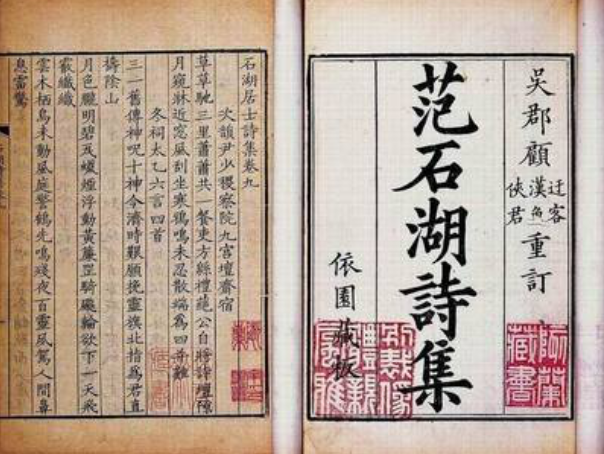 吳郡顧
迂客
漢魚
俠君
重訂
范石湖詩集
依園藏板
阿蘭藏書
別裁偽體親風雅
石湖居士詩集卷九
次韻尹少稷察院九宮壇齋宿
草草馳三里蕭蕭共一餐吏方縣禮蕝公自將詩壇隙
月窺牀近窓風刮坐寒鶴鳴未忍散端爲四并難
冬祠太乙六言四首
三一舊傳神呪十神今濟時艱願挽靈旗北指爲君直
擣陰山
月色朧明碧瓦爐煙浮動黃簾罡騎飈輪欲下一天飛
霰纖纖
雲木栖烏未動風庭警鶴先鳴殘夜百靈夙駕人間鼻
息雷驚